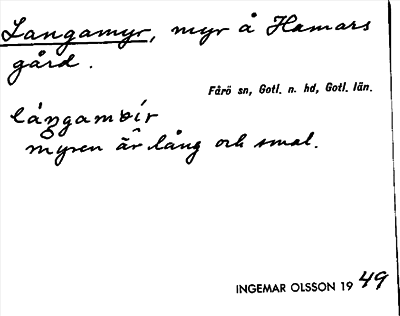 Langamyr, myr å Hamars
gård.
Fårö sn, Gotl. n. hd, Gotl. län.
myren är lång och smal.
INGEMAR OLSSON 1949